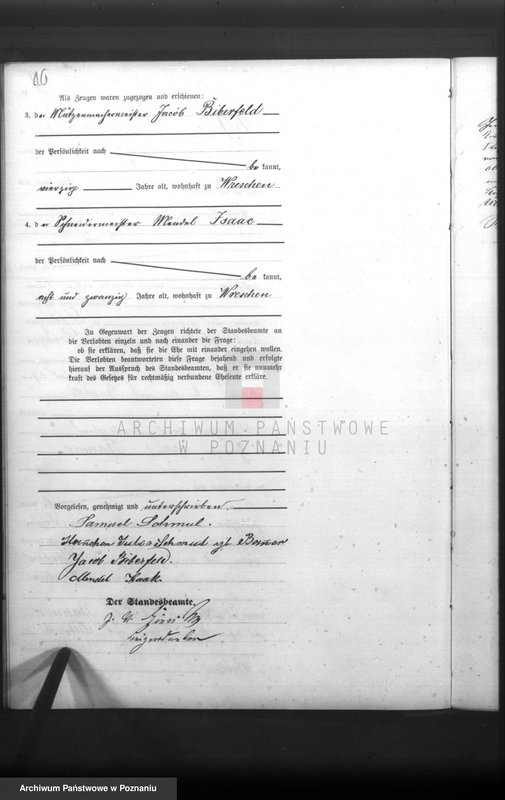 Als Zeugen waren zugezogen und erschienen:
3. der Mützenmachermeister Jacob Biberfeld
der Persönlichkeit nach
be kannt,
vierzig Jahre alt, wohnhaft zu Wreschen
4. der Schneidermeister Mendel Isaac
der Persönlichkeit nach
be kannt,
acht und zwanzig Jahre alt, wohnhaft zu Wreschen
In Gegenwart der Zeugen richtete der Standesbeamte an
die Verlobten einzeln und nach einander die Frage:
ob sie erklären, daß sie die Ehe mit einander eingehen wollen.
Die Verlobten beantworteten diese Frage bejahend und erfolgte
hierauf der Ausspruch des Standesbeamten, daß er sie nunmehr
kraft des Gesetzes für rechtmäßig verbundene Eheleute erkläre.
ARCHIWUM PAŃSTWOWE
W POZNANIU
Vorgelesen, genehmigt und unterschrieben.
Samuel Schmul.
Schmul
Jacob Biberfeld.
Mendel
Der Standesbeamte.
Archiwum Państwowe w Poznaniu